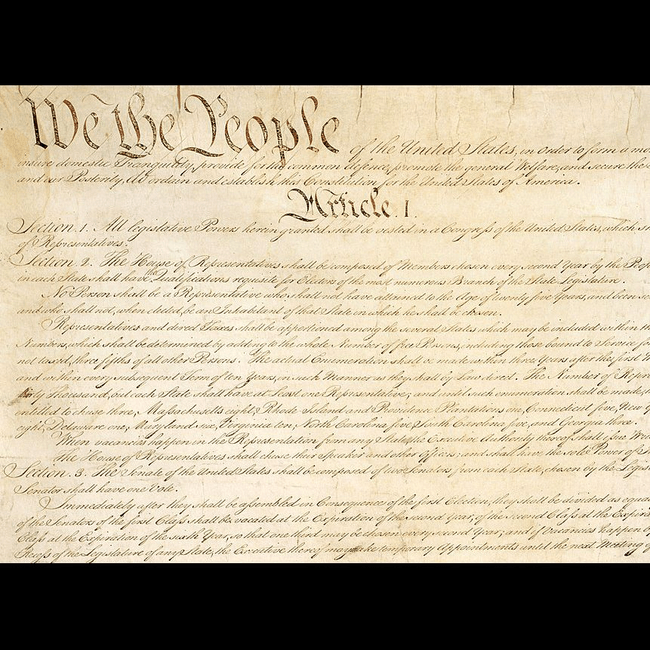 We the People of the United States, in order to form a mo
insure domestic Tranquility, provide for the common defence, promote the general Welfare, and secure the
and our Posterity, do ordain and establish this Constitution for the United States of America.
Article. I.
Section. 1. All legislative Powers herein granted shall be vested in a Congress of the United States, which sh
of Representatives.
Section. 2. The House of Representatives shall be composed of Members chosen every second Year by the Peop
in each State shall have the Qualifications requisite for Electors of the most numerous Branch of the State Legislature.
No Person shall be a Representative who shall not have attained to the Age of twenty five Years, and been se
and who shall not, when elected, be an Inhabitant of that State in which he shall be chosen.
Representatives and direct Taxes shall be apportioned among the several States which may be included within th
Numbers, which shall be determined by adding to the whole Number of free Persons, including those bound to Service fo
not taxed, three fifths of all other Persons. The actual Enumeration shall be made within three Years after the first M
and within every subsequent Term of ten Years, in such Manner as they shall by Law direct. The Number of Repre
thirty Thousand, but each State shall have at Least one Representative; and until such enumeration shall be made, th
entitled to chuse three, Massachusetts eight, Rhode Island and Providence Plantations one, Connecticut five, New Y
eight, Delaware one, Maryland six, Virginia ten, North Carolina five, South Carolina five, and Georgia three.
When vacancies happen in the Representation from any State, the Executive Authority thereof shall issue Writ
The House of Representatives shall chuse their Speaker and other Officers; and shall have the sole Power of
Section. 3. The Senate of the United States shall be composed of two Senators from each State, chosen by the Legis
Senator shall have one Vote.
Immediately after they shall be assembled in Consequence of the first Election, they shall be divided as equa
of the Senators of the first Class shall be vacated at the Expiration of the second Year, of the second Class at the Expira
Class at the Expiration of the sixth Year, so that one third may be chosen every second Year; and if Vacancies happen by
Recess of the Legislature of any State, the Executive thereof may make temporary Appointments until the next Meeting of